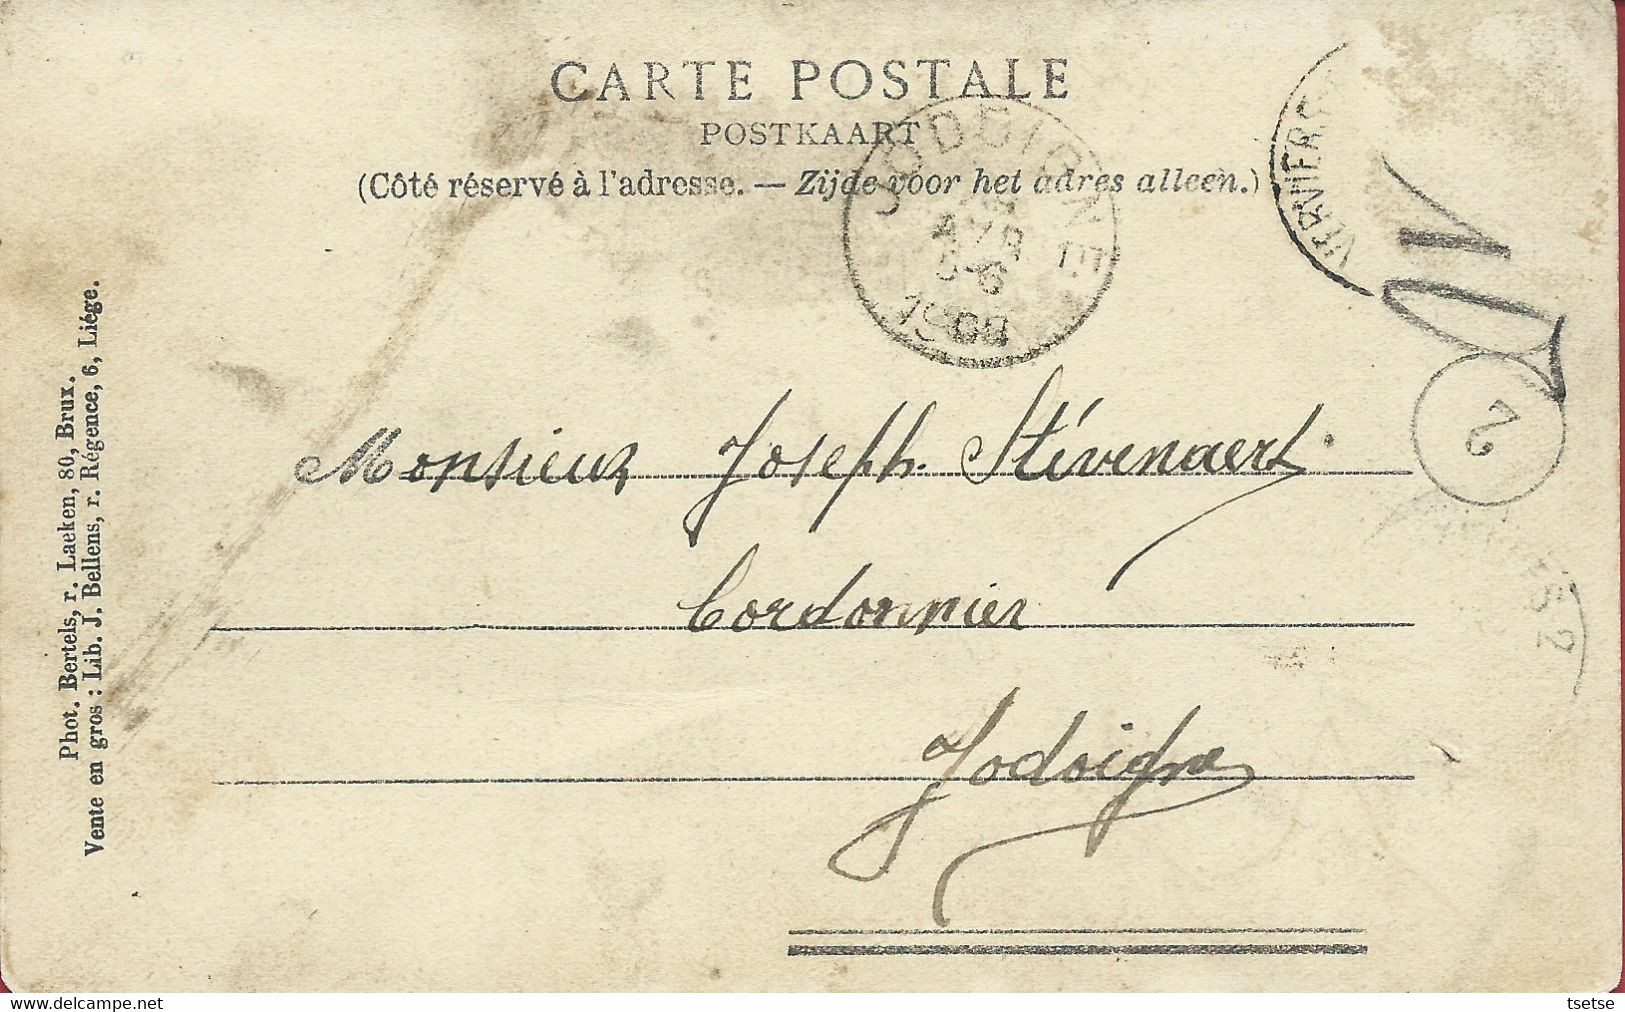 CARTE POSTALE
POSTKAART
(Côté réservé à l'adresse. — Zijde voor het adres alleen.)
JODOIGNE
AVR
5-6
1908
VERVIERS
10
2
Monsieur Joseph Stévenaert
Cordonnier
Jodoigne
Phot. Bertels, r. Laeken, 80, Brux.
Vente en gros : Lib. J. Bellens, r. Régence, 6, Liége.
www.delcampe.net
tsetse